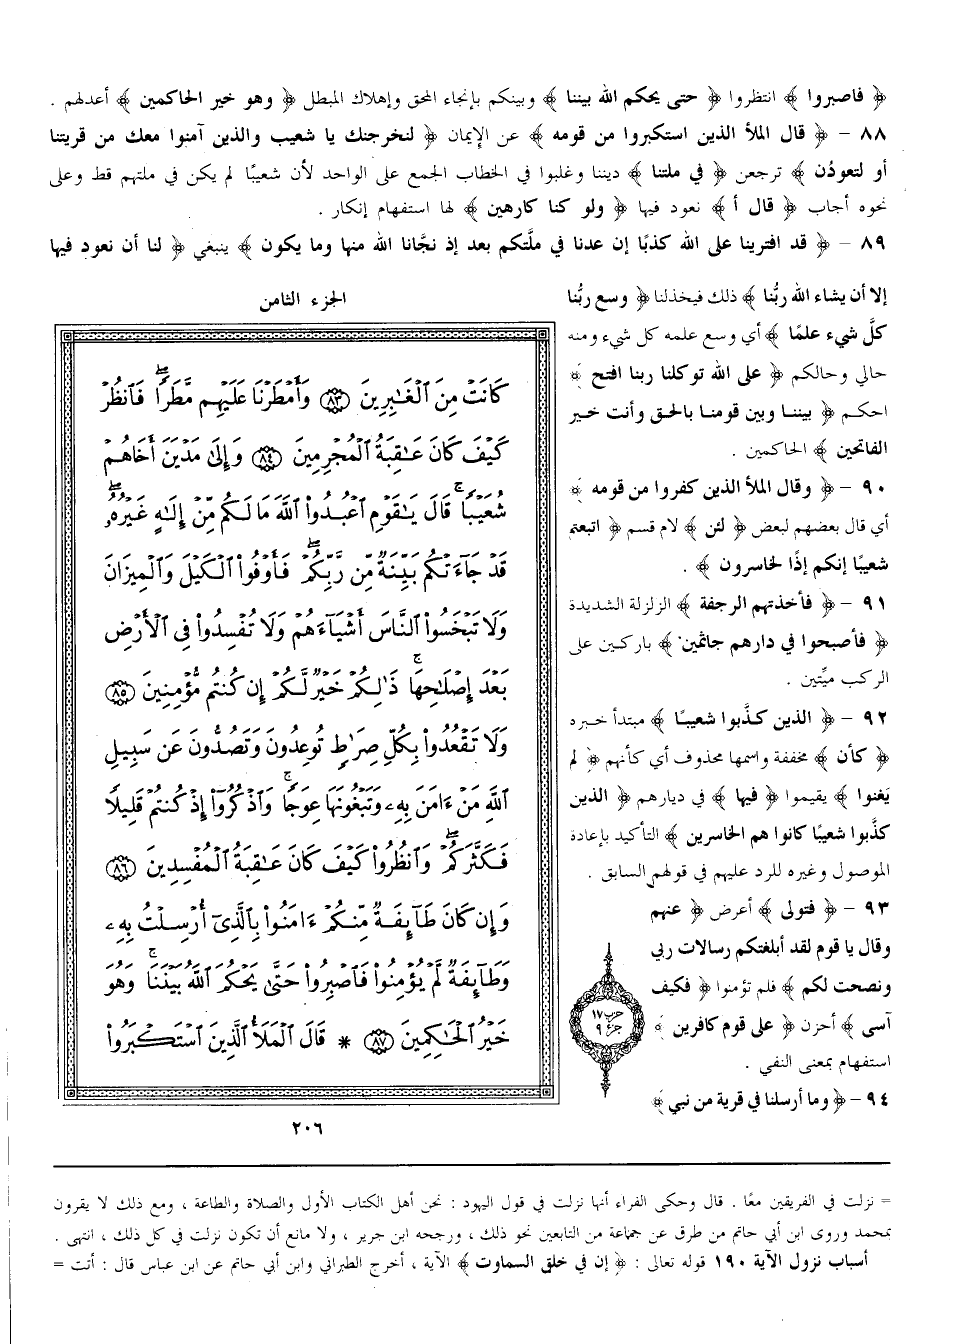 ﴿ فاصبروا ﴾ انتظروا ﴿ حتى يحكم الله بيننا ﴾ وبينكم بإنجاء المحق وإهلاك المبطل ﴿ وهو خير الحاكمين ﴾ أعدلهم .
٨٨ - ﴿ قال الملأ الذين استكبروا من قومه ﴾ عن الإيمان ﴿ لنخرجنك يا شعيب والذين آمنوا معك من قريتنا
أو لتعودُن ﴾ ترجعن ﴿ في ملتنا ﴾ ديننا وغلبوا في الخطاب الجمع على الواحد لأن شعيبًا لم يكن في ملتهم قط وعلى
نحوه أجاب ﴿ قال أ ﴾ نعود فيها ﴿ ولو كنا كارهين ﴾ لها استفهام إنكار .
٨٩ - ﴿ قد افترينا على الله كذبًا إن عدنا في ملَّتكم بعد إذ نجَّانا الله منها وما يكون ﴾ ينبغي ﴿ لنا أن نعود فيها
إلا أن يشاء الله ربُّنا ﴾ ذلك فيخذلنا ﴿ وسع ربُّنا
كلَّ شيء علمًا ﴾ أي وسع علمه كل شيء ومنه
حالي وحالكم ﴿ على الله توكلنا ربنا افتح ﴾
احكم ﴿ بيننا وبين قومنا بالحق وأنت خير
الفاتحين ﴾ الحاكمين .
٩٠ - ﴿ وقال الملأ الذين كفروا من قومه ﴾
أي قال بعضهم لبعض ﴿ لئن ﴾ لام قسم ﴿ اتبعتم
شعيبًا إنكم إذًا لخاسرون ﴾ .
٩١ - ﴿ فأخذتهم الرجفة ﴾ الزلزلة الشديدة
﴿ فأصبحوا في دارهم جاثمين ﴾ باركين على
الركب ميِّتين .
٩٢ - ﴿ الذين كذَّبوا شعيبًا ﴾ مبتدأ خبره
﴿ كأن ﴾ مخففة واسمها محذوف أي كأنهم ﴿ لم
يَغنوا ﴾ يقيموا ﴿ فيها ﴾ في ديارهم ﴿ الذين
كذَّبوا شعيبًا كانوا هم الخاسرين ﴾ التأكيد بإعادة
الموصول وغيره للرد عليهم في قولهم السابق .
٩٣ - ﴿ فتولى ﴾ أعرض ﴿ عنهم
وقال يا قوم لقد أبلغتكم رسالات ربي
ونصحت لكم ﴾ فلم تؤمنوا ﴿ فكيف
آسى ﴾ أحزن ﴿ على قوم كافرين ﴾
استفهام بمعنى النفي .
٩٤ - ﴿ وما أرسلنا في قرية من نبي ﴾
حزب ١٧
جزء ٩
الجزء الثامن
كَانَتْ مِنَ ٱلْغَٰبِرِينَ ٨٣ وَأَمْطَرْنَا عَلَيْهِم مَّطَرًا ۖ فَٱنظُرْ
كَيْفَ كَانَ عَٰقِبَةُ ٱلْمُجْرِمِينَ ٨٤ وَإِلَىٰ مَدْيَنَ أَخَاهُمْ
شُعَيْبًا ۗ قَالَ يَٰقَوْمِ ٱعْبُدُوا۟ ٱللَّهَ مَا لَكُم مِّنْ إِلَٰهٍ غَيْرُهُۥ ۖ
قَدْ جَآءَتْكُم بَيِّنَةٌ مِّن رَّبِّكُمْ ۖ فَأَوْفُوا۟ ٱلْكَيْلَ وَٱلْمِيزَانَ
وَلَا تَبْخَسُوا۟ ٱلنَّاسَ أَشْيَآءَهُمْ وَلَا تُفْسِدُوا۟ فِى ٱلْأَرْضِ
بَعْدَ إِصْلَٰحِهَا ۚ ذَٰلِكُمْ خَيْرٌ لَّكُمْ إِن كُنتُم مُّؤْمِنِينَ ٨٥
وَلَا تَقْعُدُوا۟ بِكُلِّ صِرَٰطٍ تُوعِدُونَ وَتَصُدُّونَ عَن سَبِيلِ
ٱللَّهِ مَنْ ءَامَنَ بِهِۦ وَتَبْغُونَهَا عِوَجًا ۚ وَٱذْكُرُوٓا۟ إِذْ كُنتُمْ قَلِيلًا
فَكَثَّرَكُمْ ۖ وَٱنظُرُوا۟ كَيْفَ كَانَ عَٰقِبَةُ ٱلْمُفْسِدِينَ ٨٦
وَإِن كَانَ طَآئِفَةٌ مِّنكُمْ ءَامَنُوا۟ بِٱلَّذِىٓ أُرْسِلْتُ بِهِۦ
وَطَآئِفَةٌ لَّمْ يُؤْمِنُوا۟ فَٱصْبِرُوا۟ حَتَّىٰ يَحْكُمَ ٱللَّهُ بَيْنَنَا ۚ وَهُوَ
خَيْرُ ٱلْحَٰكِمِينَ ٨٧ * قَالَ ٱلْمَلَأُ ٱلَّذِينَ ٱسْتَكْبَرُوا۟
٢٠٦
= نزلت في الفريقين معًا . قال وحكى الفراء أنها نزلت في قول اليهود : نحن أهل الكتاب الأول والصلاة والطاعة ، ومع ذلك لا يقرون
بمحمد وروى ابن أبي حاتم من طرق عن جماعة من التابعين نحو ذلك ، ورجحه ابن جرير ، ولا مانع أن تكون نزلت في كل ذلك ، انتهى .
أسباب نزول الآية ١٩٠ قوله تعالى : ﴿ إن في خلق السماوت ﴾ الآية ، أخرج الطبراني وابن أبي حاتم عن ابن عباس قال : أتت =